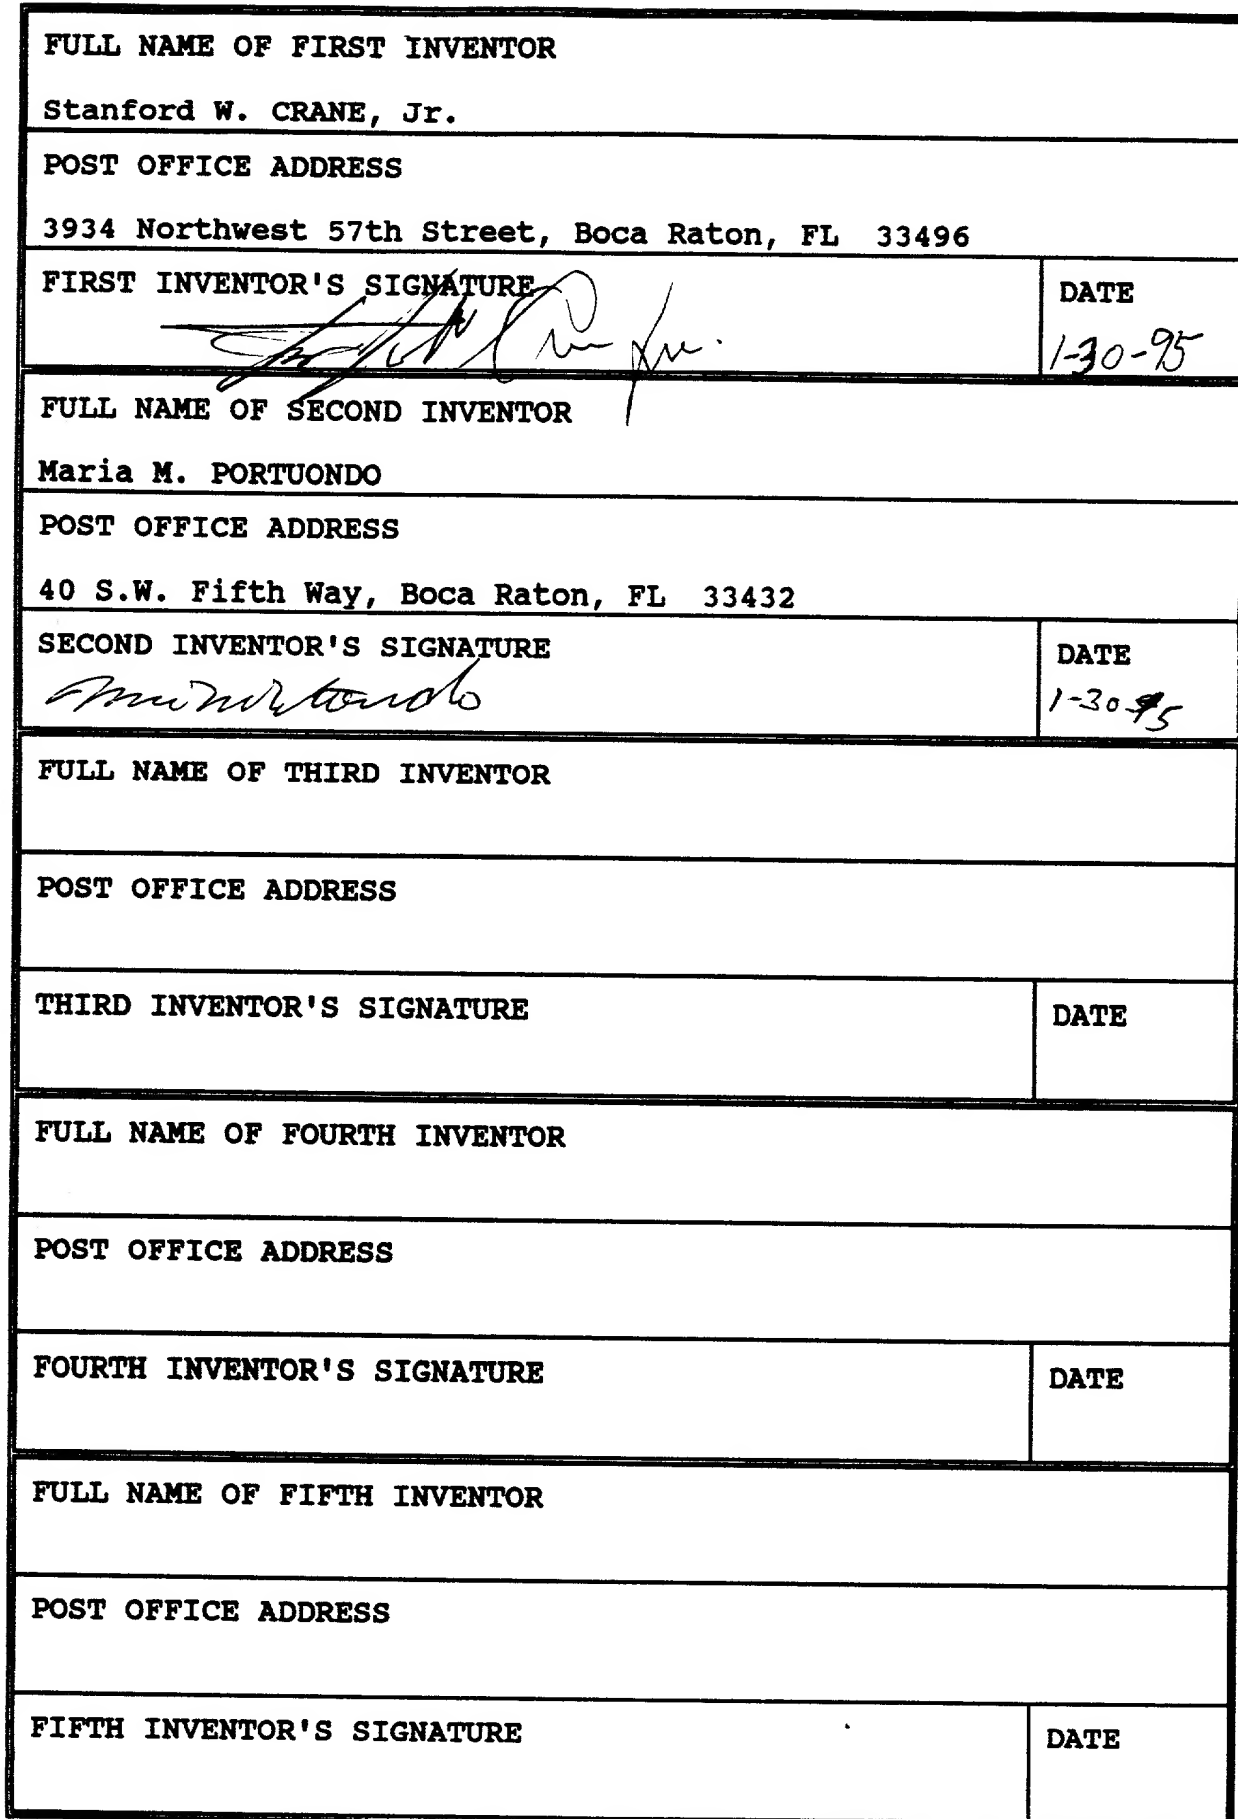 FULL NAME OF FIRST INVENTOR
Stanford W. CRANE, Jr.
POST OFFICE ADDRESS
3934 Northwest 57th Street, Boca Raton, FL 33496
FIRST INVENTOR'S SIGNATURE DATE
1-30-95
FULL NAME OF SECOND INVENTOR
Maria M. PORTUONDO
POST OFFICE ADDRESS
40 S.W. Fifth Way, Boca Raton, FL 33432
SECOND INVENTOR'S SIGNATURE DATE
1-30-95
FULL NAME OF THIRD INVENTOR
POST OFFICE ADDRESS
THIRD INVENTOR'S SIGNATURE DATE
FULL NAME OF FOURTH INVENTOR
POST OFFICE ADDRESS
FOURTH INVENTOR'S SIGNATURE DATE
FULL NAME OF FIFTH INVENTOR
POST OFFICE ADDRESS
FIFTH INVENTOR'S SIGNATURE DATE